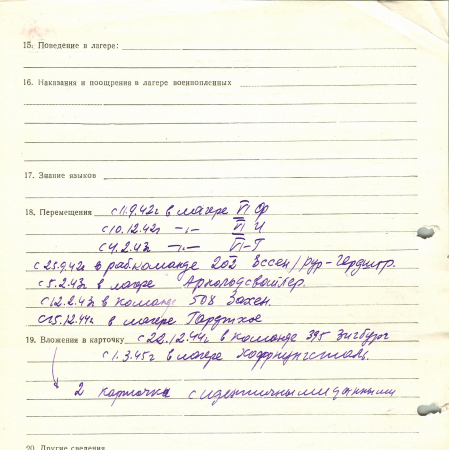 15. Поведение в лагере:
16. Наказания и поощрения в лагере военнопленных
17. Знание языков
18. Перемещения с 11.9.42г в лагере VI Ф
с 10.12.42г -"- VI И
с 4.2.43г -"- VI-Г
с 25.9.42г в раб.команде 202 Эссен/рур-
с 5.2.43г в лагере Арнольдсвайлер.
с 12.2.43г в команде 508 Аахен.
с 15.12.44г в лагере
19. Вложения в карточку с 22.12.44г в команде 395 Зигбург
с 1.3.45г в лагере Хоффнунгсталь.
2 карточки с идентичными данными
20. Другие сведения